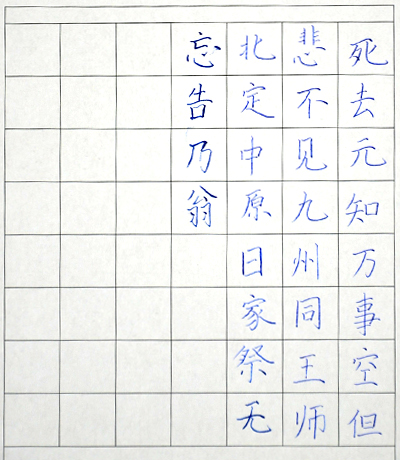 死去元知万事空但
悲不见九州同王师
北定中原日家祭无
忘告乃翁